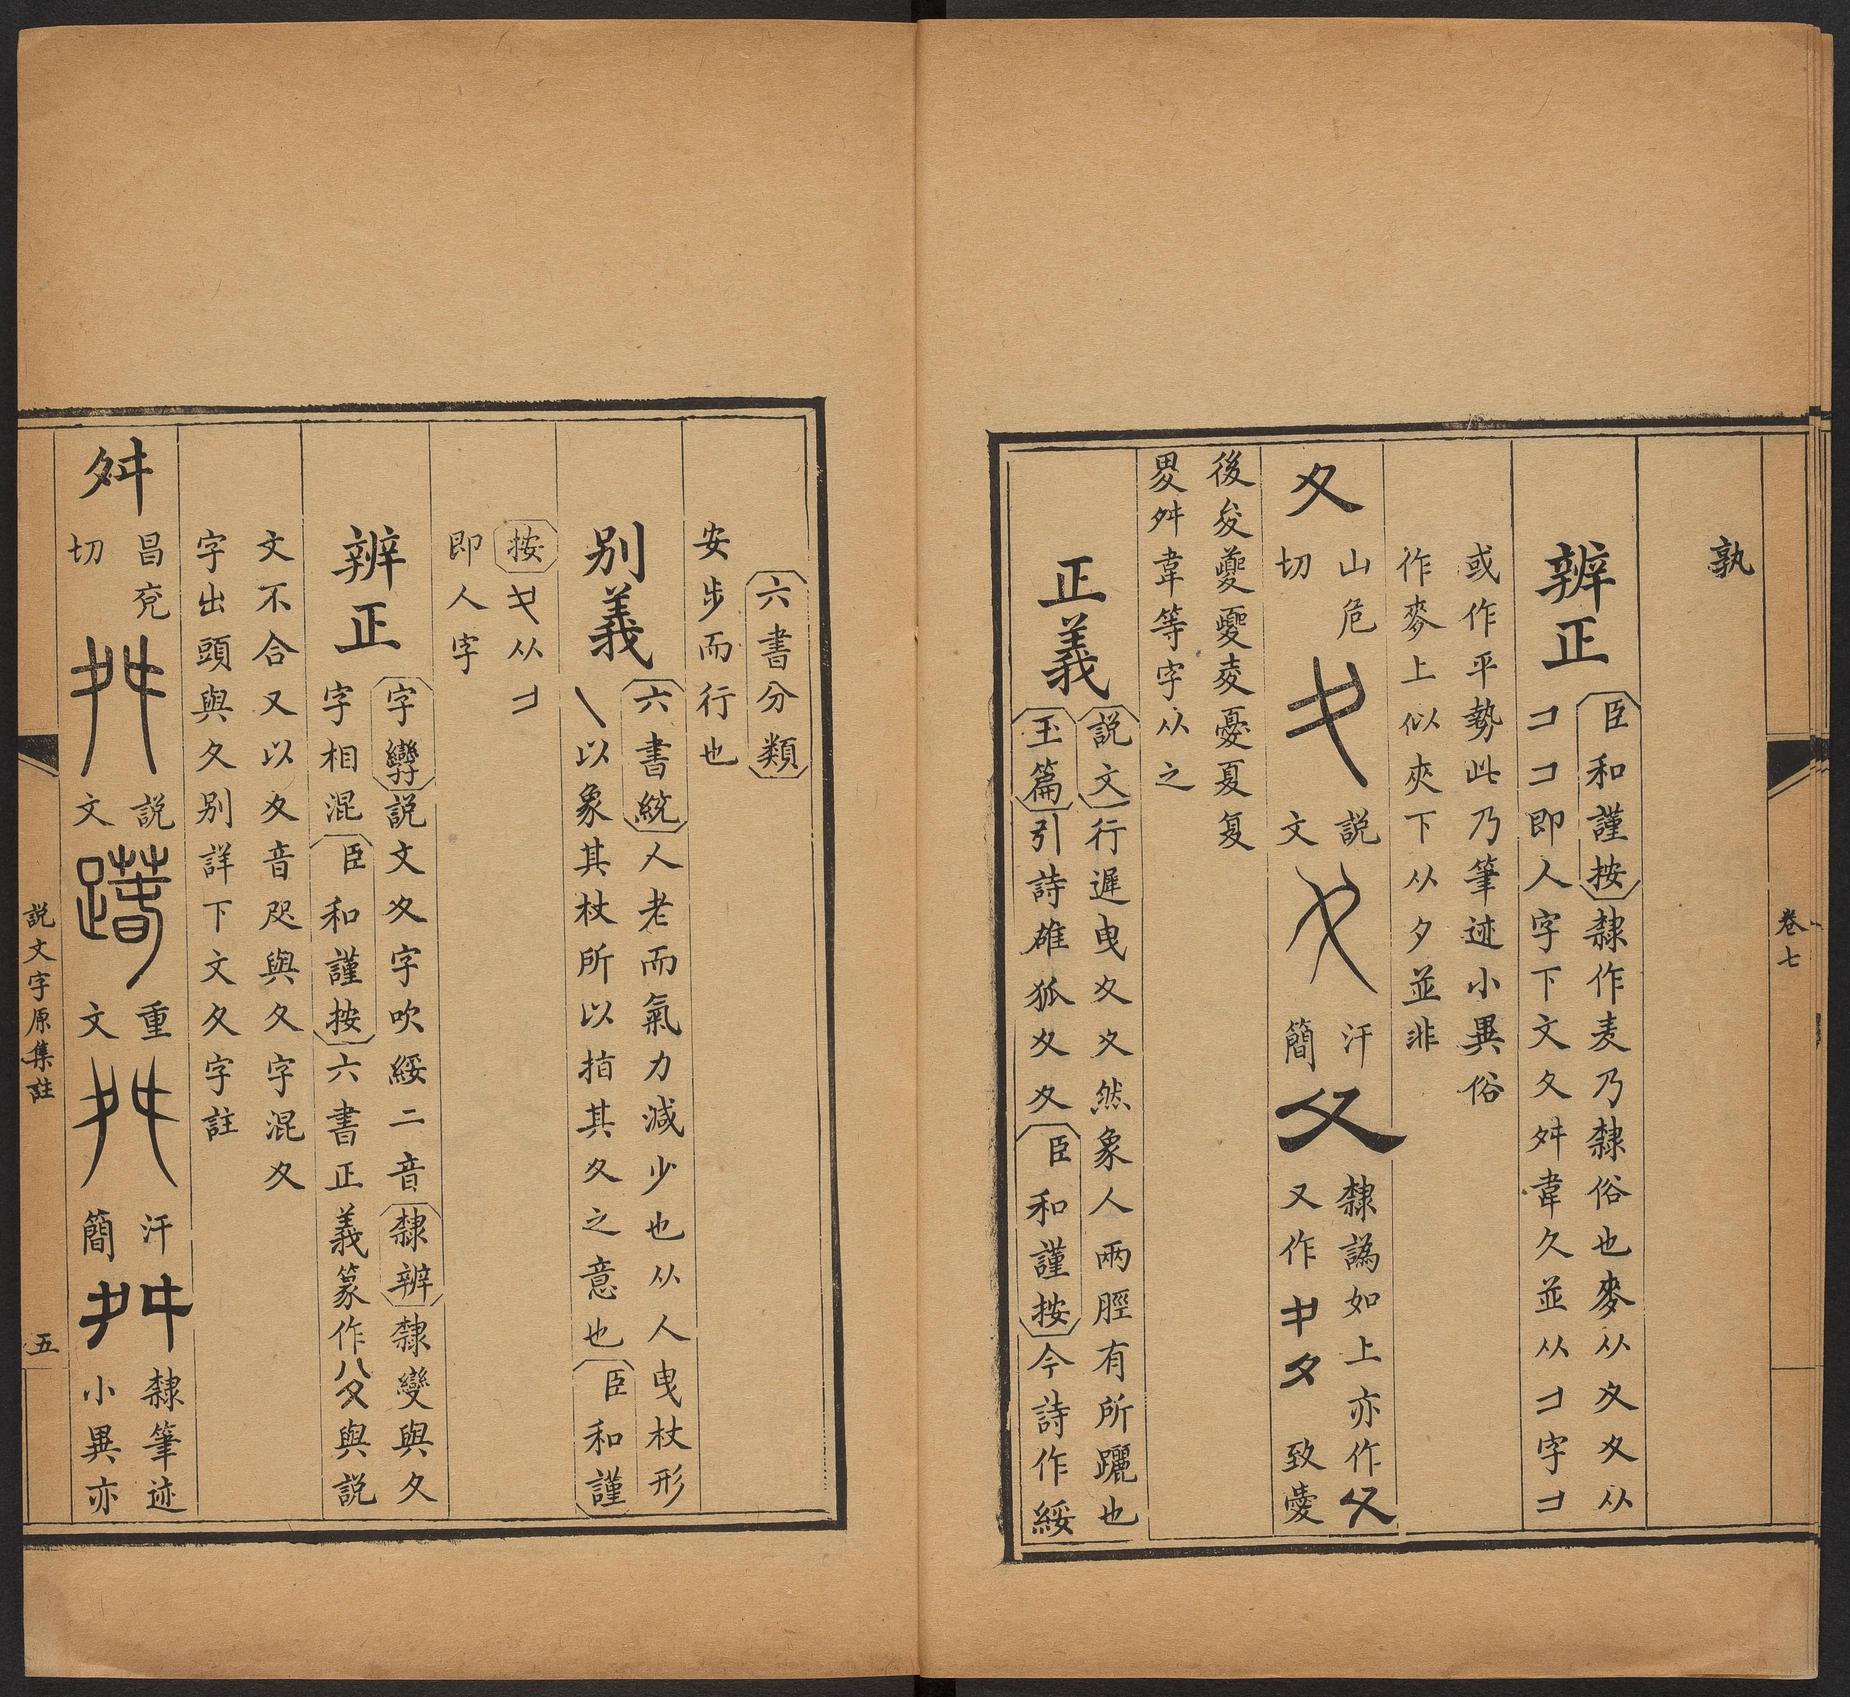 卷七
孰
辨正
臣和謹按隸作麦乃隸俗也麥从夊夊从
ココ即人字下文夂舛韋久並从コ字コ
或作平勢此乃筆迹小異俗
作麥上似夾下从夕並非
夊
山危
切
說
文
汗
簡
隸譌如上亦作
又作
致愛
後夋夔夓夌憂夏复
畟舛韋等字从之
正義
說文行遲曳夊夊然象人兩脛有所躧也
玉篇引詩雄狐夊夊臣和謹按今詩作綏
六書分類
安步而行也
別義
六書統人老而氣力減少也从人曳杖形
乀以象其杖所以拍其久之意也臣和謹
按夊从コ
即人字
辨正
字孿說文夊字吹綏二音隸辨隸變與夂
字相混臣和謹按六書正義篆作與說
文不合又以夊音咫與夂字混夊
字出頭與夂別詳下文夂字註
舛
昌兗
切
說
文
重
文
汗
簡
隸筆迹
小異亦
說文字原集註
五